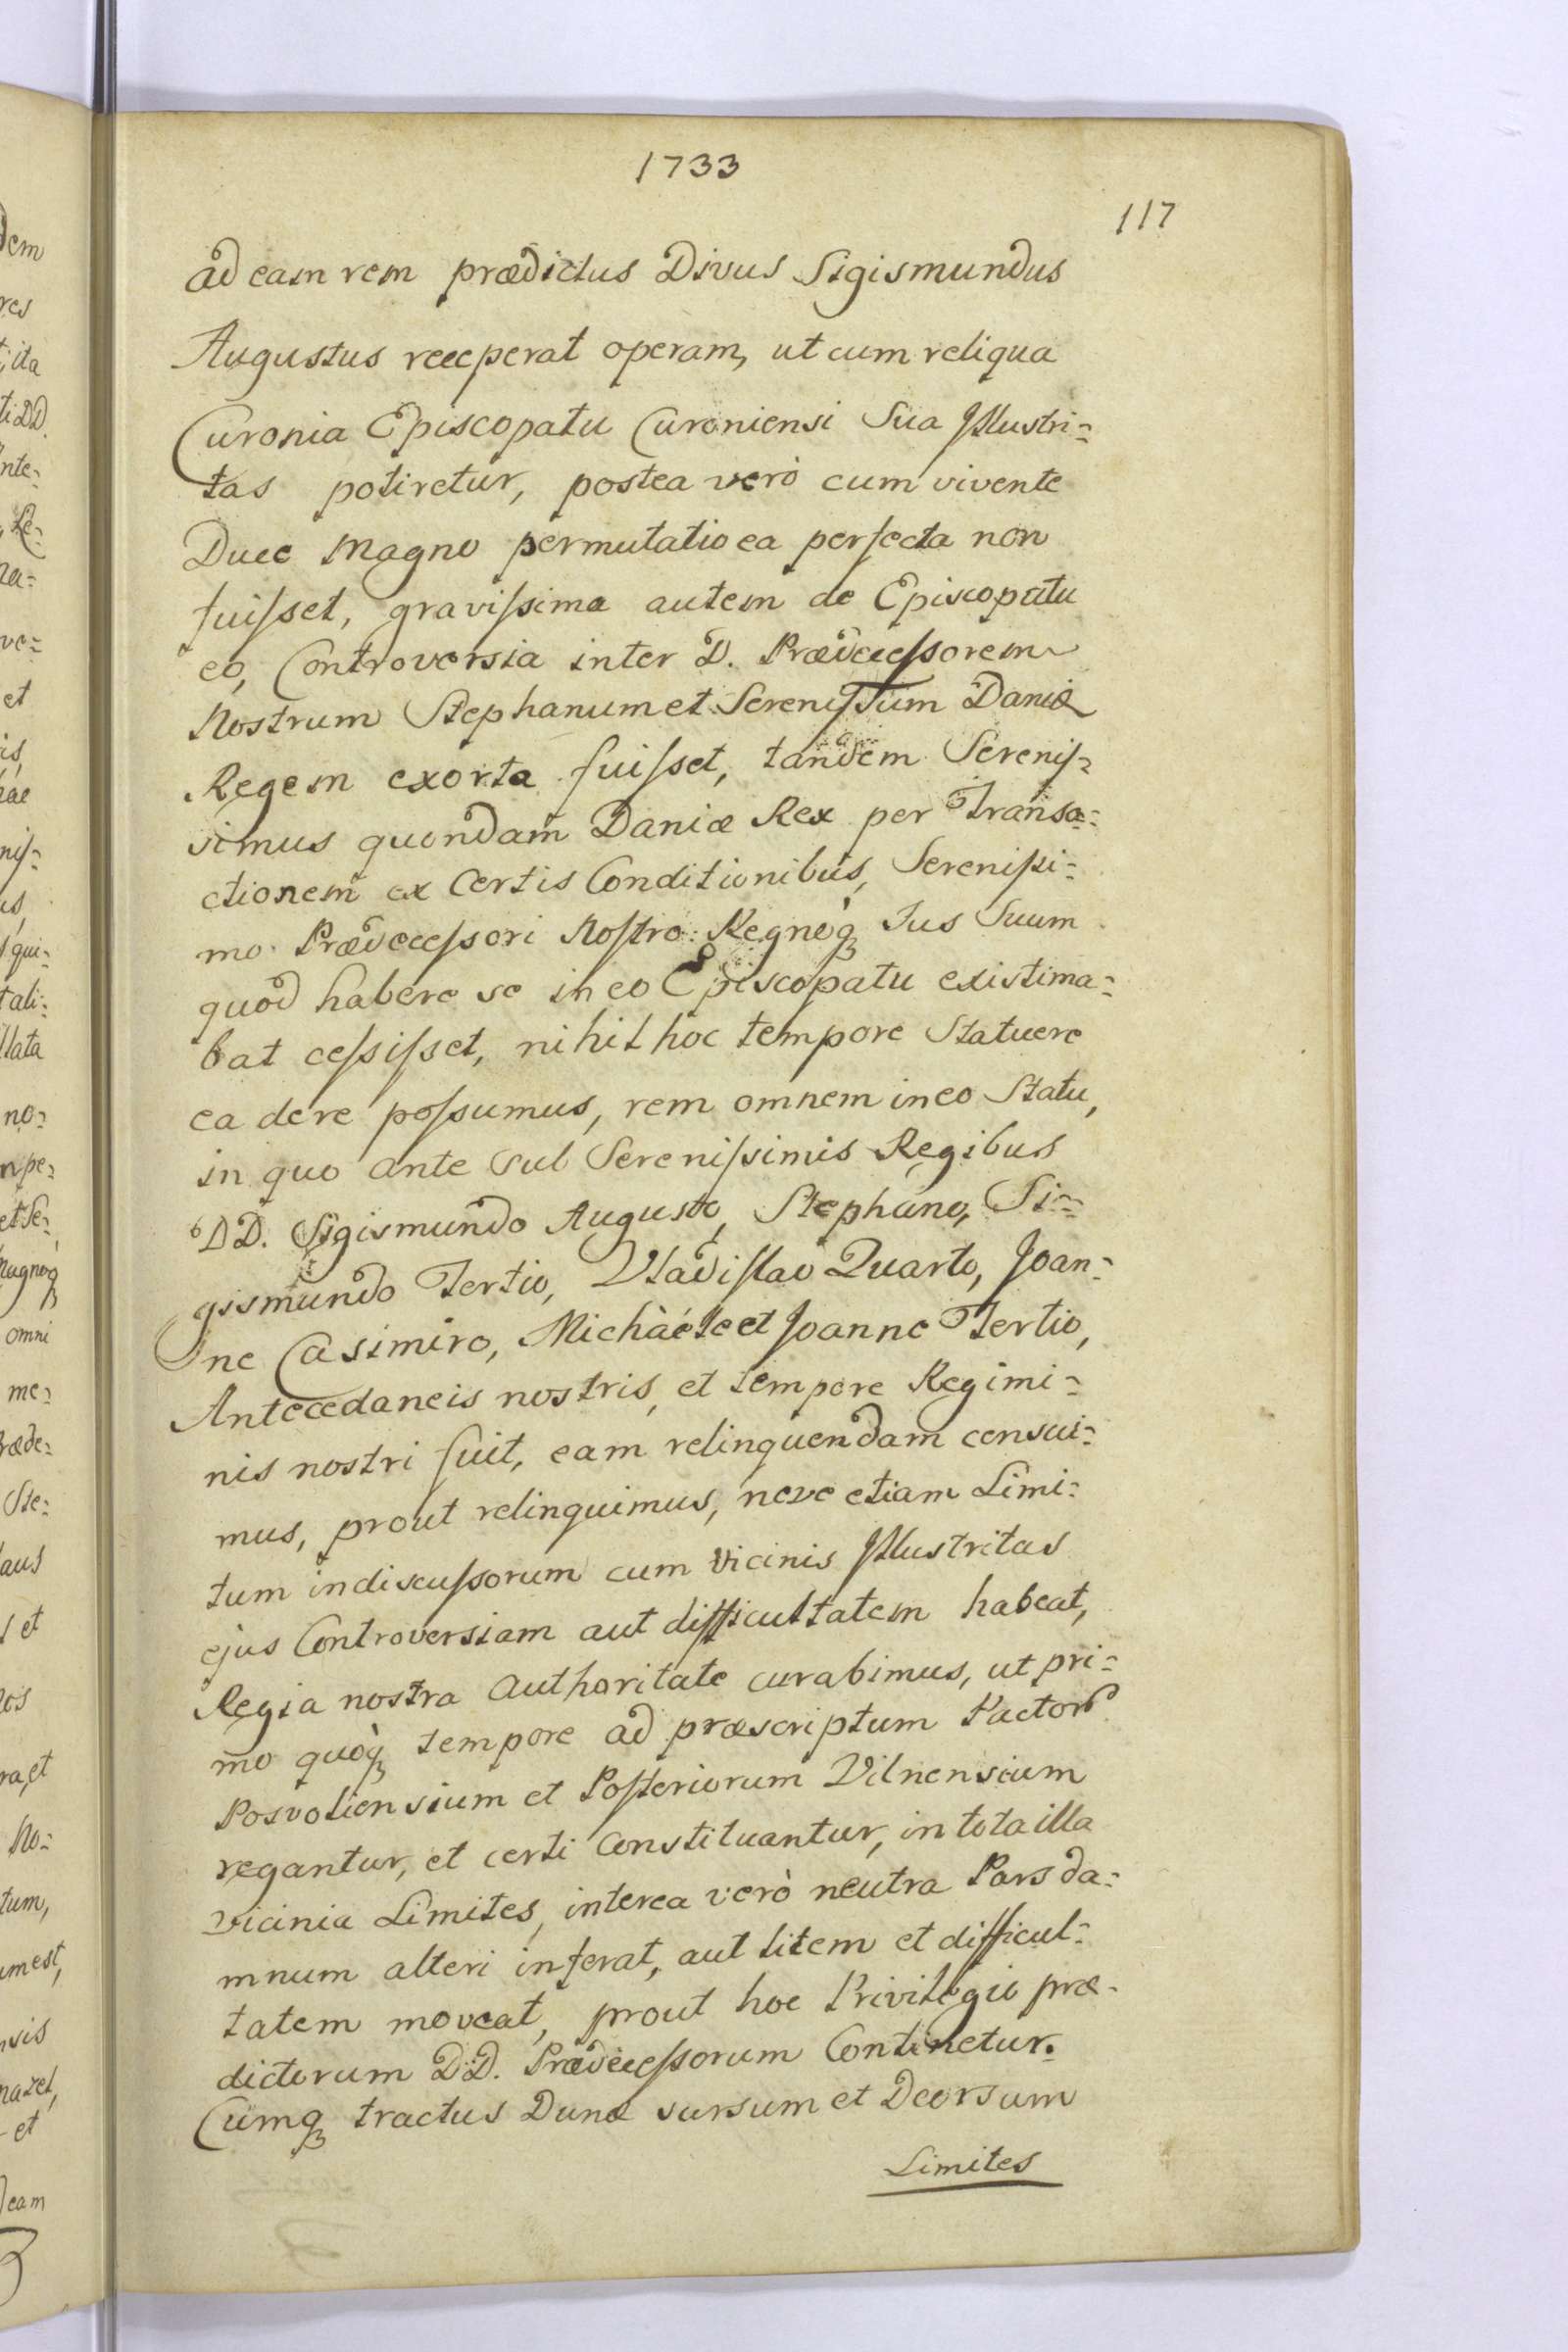 1733
117
ad eam rem prædictus Divus Sigismundus
Augustus receperat operam, ut cum reliqua
Curonia Episcopatu Curoniensi Sua Illustri=
tas potiretur, postea verò cum vivente
Duce Magno permutatio ea perfecta non
fuisset, gravissima autem de Episcopatu
eo, Controversia inter D. Prædecessorem
Nostrum Stephanum et Serenissum Daniæ
Regem exorta fuisset, tandem Serenis=
simus quondam Daniæ Rex per Transa=
ctionem ex Certis Conditionibus, Serenissi=
mo Prædecessori Nostro Regnoq Jus Suum
quod habere se in eo Episcopatu existima=
bat cessisset, nihil hoc tempore Statuere
ea de re possumus, rem omnem in eo Statu,
in quo ante sub Serenissimis Regibus
DD. Sigismundo Augusto, Stephano, Si=
gismundo Tertio, Vladislao Quarto, Joan=
ne Casimiro, Michàéle et Joanne Tertio,
Antecedaneis nostris, et tempore Regimi=
nis nostri fuit, eam relinquendam censui=
mus, prout relinquimus, neve etiam Limi=
tum indiscussorum cum Vicinis Illustritas
ejus Controversiam aut difficultatem habeat,
Regia nostra Authoritate curabimus, ut pri=
mo quoq tempore ad præscriptum Pactor
Posvoliensium et Posteriorum Vilnensium
regantur, et certi Constituantur, in tota illa
vicinia Limites, interea verò neutra Pars da=
mnum alteri inferat, aut litem et difficul=
tatem moveat, prout hoc Privilegio præ=
dictorum DD. Prædecessorum Continetur.
Cumq tractus Dunæ sursum et Deorsum
Limites